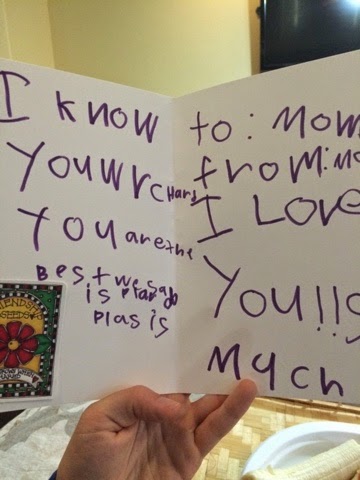 I know
You wr CHard
You are the
Best we
is
Plas is
to: Mom
from: Mo
I Love
You!!
Mych